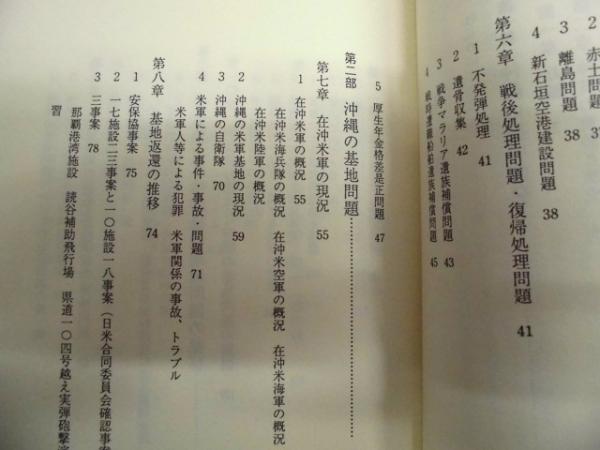 2 赤土問題 37
3 離島問題 38
4 新石垣空港建設問題 38
第六章 戦後処理問題・復帰処理問題 41
1 不発弾処理 41
2 遺骨収集 42
3 戦争マラリア遺族補償問題 43
4 戦時遭難船舶遺族補償問題 45
5 厚生年金格差是正問題 47
第二部 沖縄の基地問題
第七章 在沖米軍の現況 55
1 在沖米軍の概況 55
在沖米海兵隊の概況 在沖米空軍の概況 在沖米海軍の概況
在沖米陸軍の概況
2 沖縄の米軍基地の現況 59
3 沖縄の自衛隊 70
4 米軍による事件・事故・問題 71
米軍人等による犯罪 米軍関係の事故、トラブル
第八章 基地返還の推移 74
1 安保協事案 75
2 一七施設二三事案と一〇施設一八事案(日米合同委員会確認事案
3 三事案 78
那覇港湾施設 読谷補助飛行場 県道一〇四号越え実弾砲撃演
習